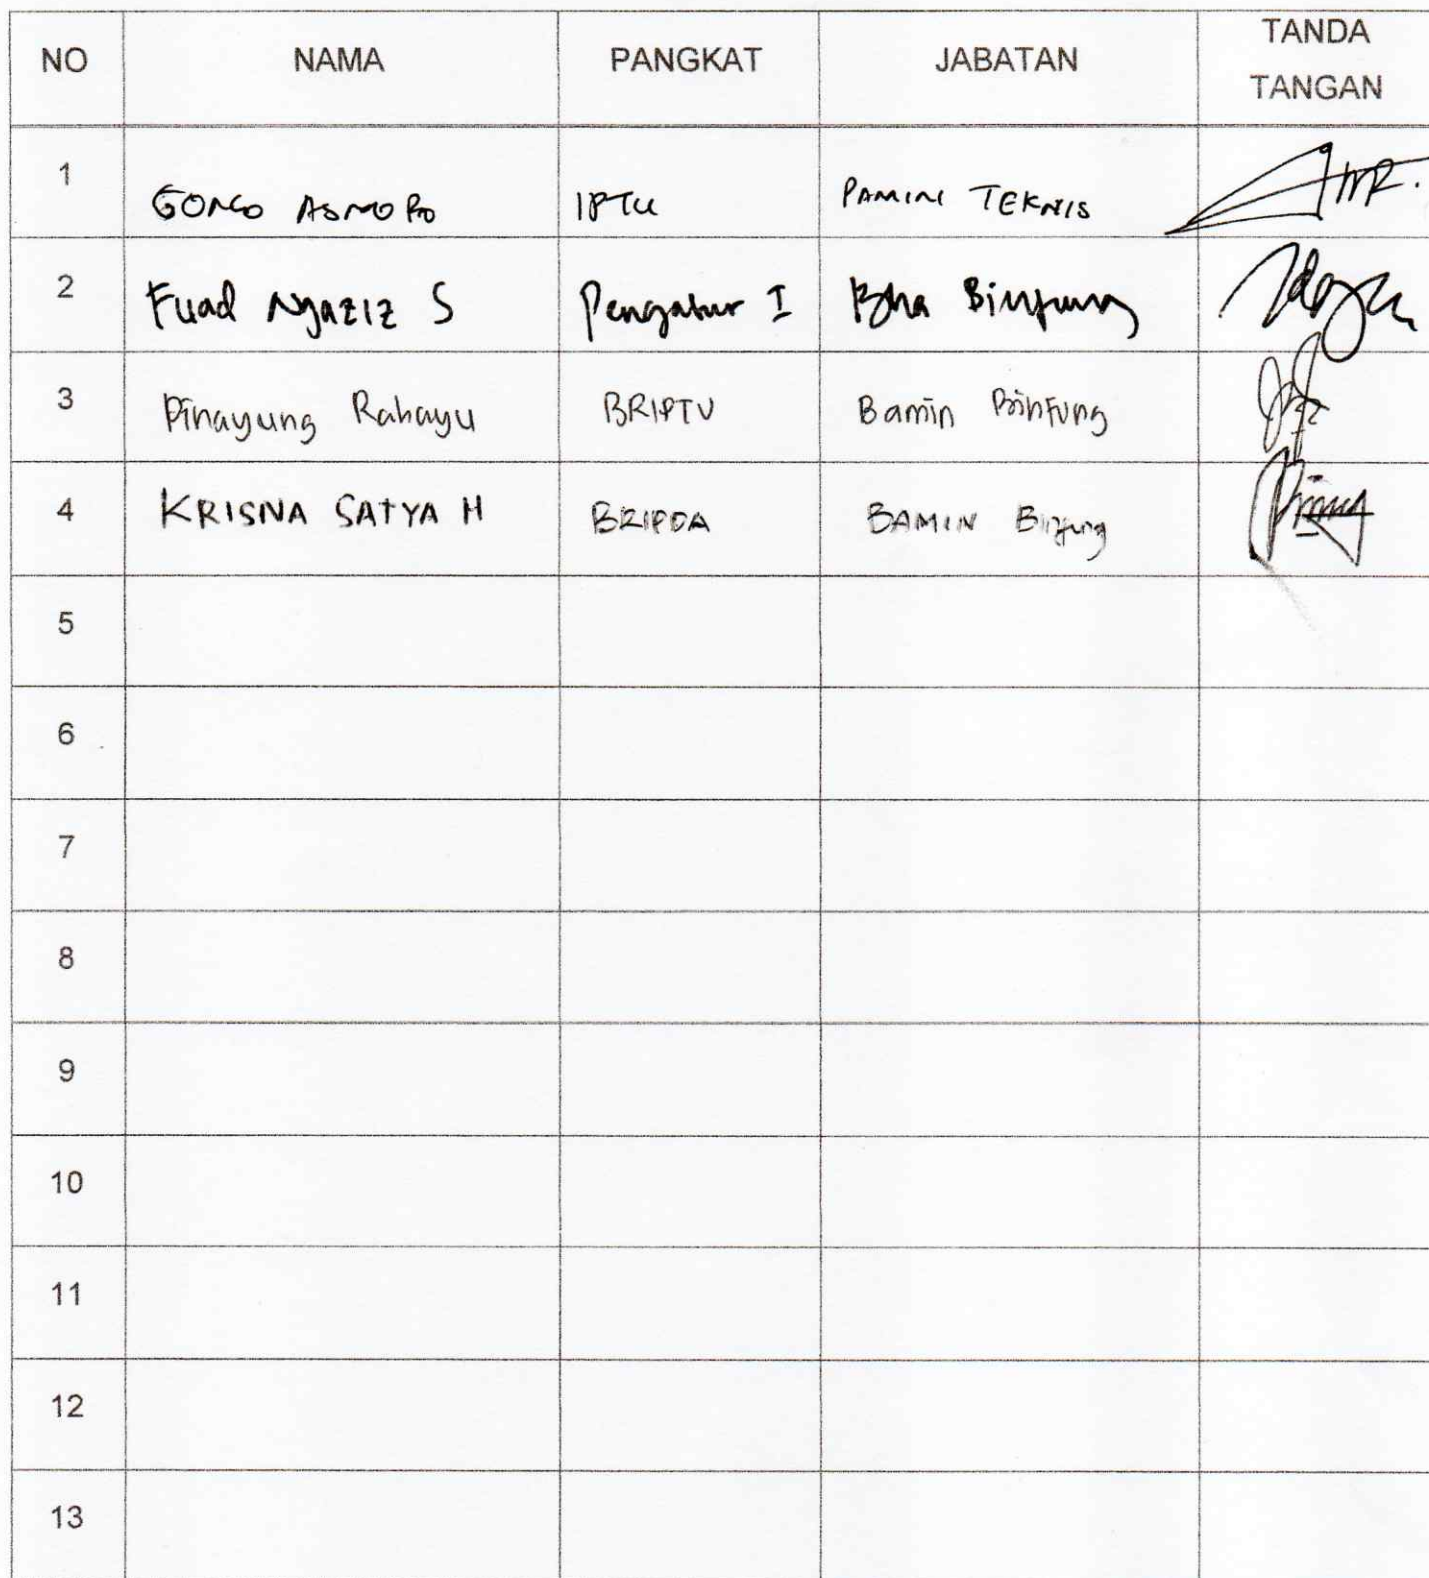 NO NAMA PANGKAT JABATAN TANDA TANGAN
1 GONGO ASMORO IPTU PAMIN TEKNIS
2 Fuad Ngaziz S Pengatur I Binfung
3 Pinayung Rahayu BRIPTU Bamin Binfung
4 KRISNA SATYA H BRIPDA BAMIN Binfung
5
6
7
8
9
10
11
12
13